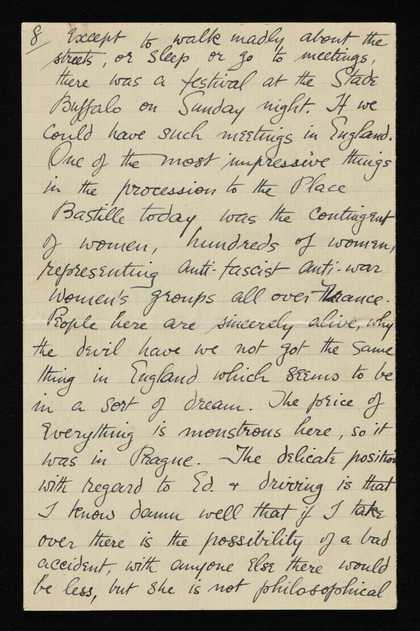 8/ Except to walk madly about the
streets, or sleep, or go to meetings,
there was a festival at the Stade
Buffalo on Sunday night. If we
could have such meetings in England.
One of the most impressive things
in the procession to the Place
Bastille today was the contingent
of women, hundreds of women,
representing anti-fascist anti-war
Women's groups all over France.
People here are sincerely alive, why
the devil have we not got the same
thing in England which seems to be
in a sort of dream. The price of
everything is monstrous here, so it
was in Prague. - The delicate position
with regard to Ed. & driving is that
I know damn well that if I take
over there is the possibility of a bad
accident, with anyone else there would
be less, but she is not philosophical